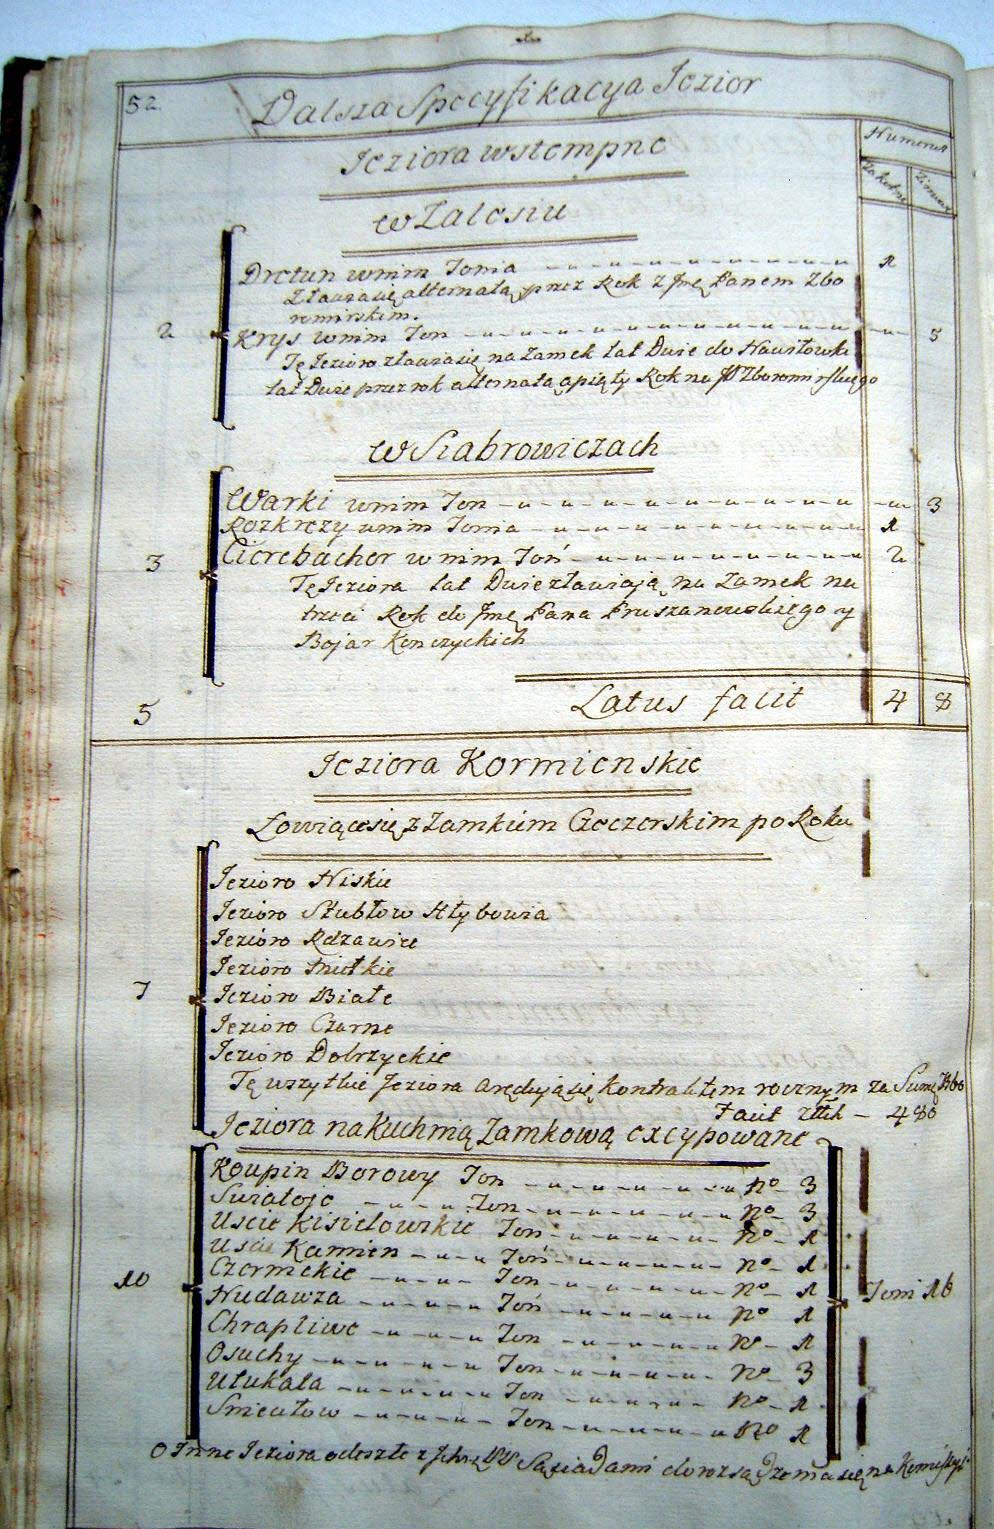 52
Dalsza Specyfikacya Jezior
Jeziora wstempne
Numerus
Zimny
w Zalesiu
Dretun w nim Tonia 1
Zławia się alternatą przez Rok z Jmę Panem Zbo
romirskim.
2
Krys w nim Ton 5
Tę Jezioro zławia się na Zamek lat Dwie do
lat Dwie przez rok alternatą a piąty Rok na
w Siabrowiczach
Warki w nim Ton 3
Rozkrezy w nim Tonia 1
3
Cierebacher w nim Toń 2
Tę Jeziora lat Dwie zławiają na Zamek na
trzeci Rok do Jmę Pana Pruszanowskiego y
Bojar Konczyckich
5
Latus facit 4 8
Jeziora Kormienskie
Łowiące się z Zamkiem Czeczerskim po Roku
Jezioro Niskie
Jezioro Stubłow Hłybowia
Jezioro Rdzawice
Jezioro Miełkie
7
Jezioro Białe
Jezioro Czarne
Jezioro Dobrzyckie
Tę wszytkie Jeziora arędują się kontraktem rocznym za Sumę
Facit złtch – 480
Jeziora na Kuchnią Zamkową excypowane
Koupin Borowy Ton No 3
Swiatoje Ton No 3
Uscie Kisielowskie Ton No 1
Uscie Kamien Toń No 1
10
Czermekie Ton No 1
Nudawza Toń No 1
Toni 16
Chrapliwe Ton No 1
Osuchy Ton No 3
Utukała Ton No 1
Smeutow Ton No 1
O Inne Jeziora odeszłe z Sąsiadami do